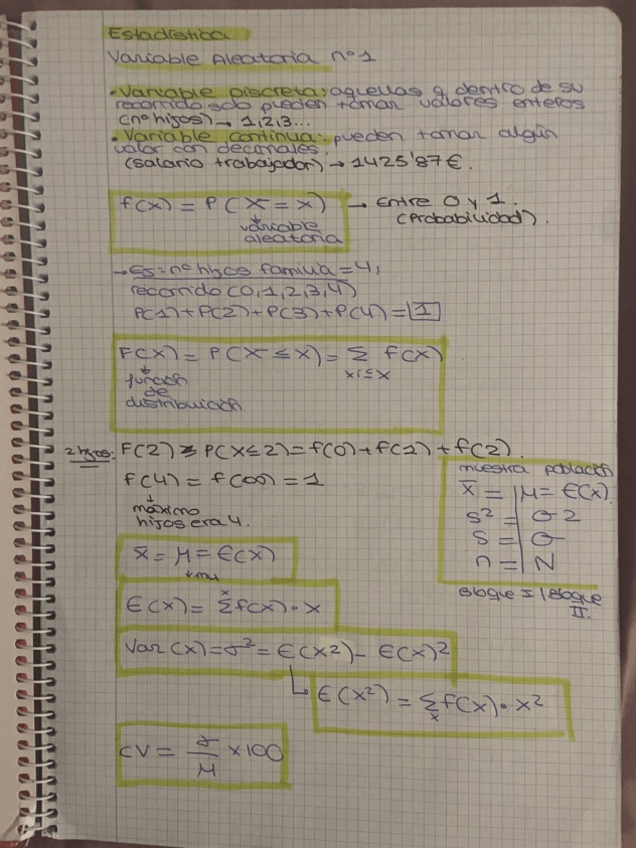 Estadística
Variable Aleatoria nº1
• Variable Discreta: aquellas q dentro de su
recorrido solo pueden tomar valores enteros
(nº hijos) → 1,2,3...
• Variable continua: pueden tomar algún
valor con decimales.
(salario trabajador) → 1425'87€.
f(x) = P(X = x) → Entre 0 y 1.
(Probabilidad).
variable
aleatoria
→ Ej: nº hijos familia = 4,
recorrido (0,1,2,3,4)
P(1)+P(2)+P(3)+P(4)=1
F(x) = P(X ≤ x) = Σ f(x)
xi≤x
función
de
distribución
2 hijos: F(2) = P(X≤2) = f(0)+f(1)+f(2).
f(4) = f(∞) = 1
máximo
hijos era 4.
muestra población
x̄ = μ = E(x)
s² = σ2
s = σ
n = N
Bloque I / Bloque
II.
x̄ = μ = E(x)
↓mu
E(x) = Σ f(x) · x
x
Var(x) = σ² = E(x²) - E(x)²
↳ E(x²) = Σ f(x) · x²
x
CV = σ/μ x100